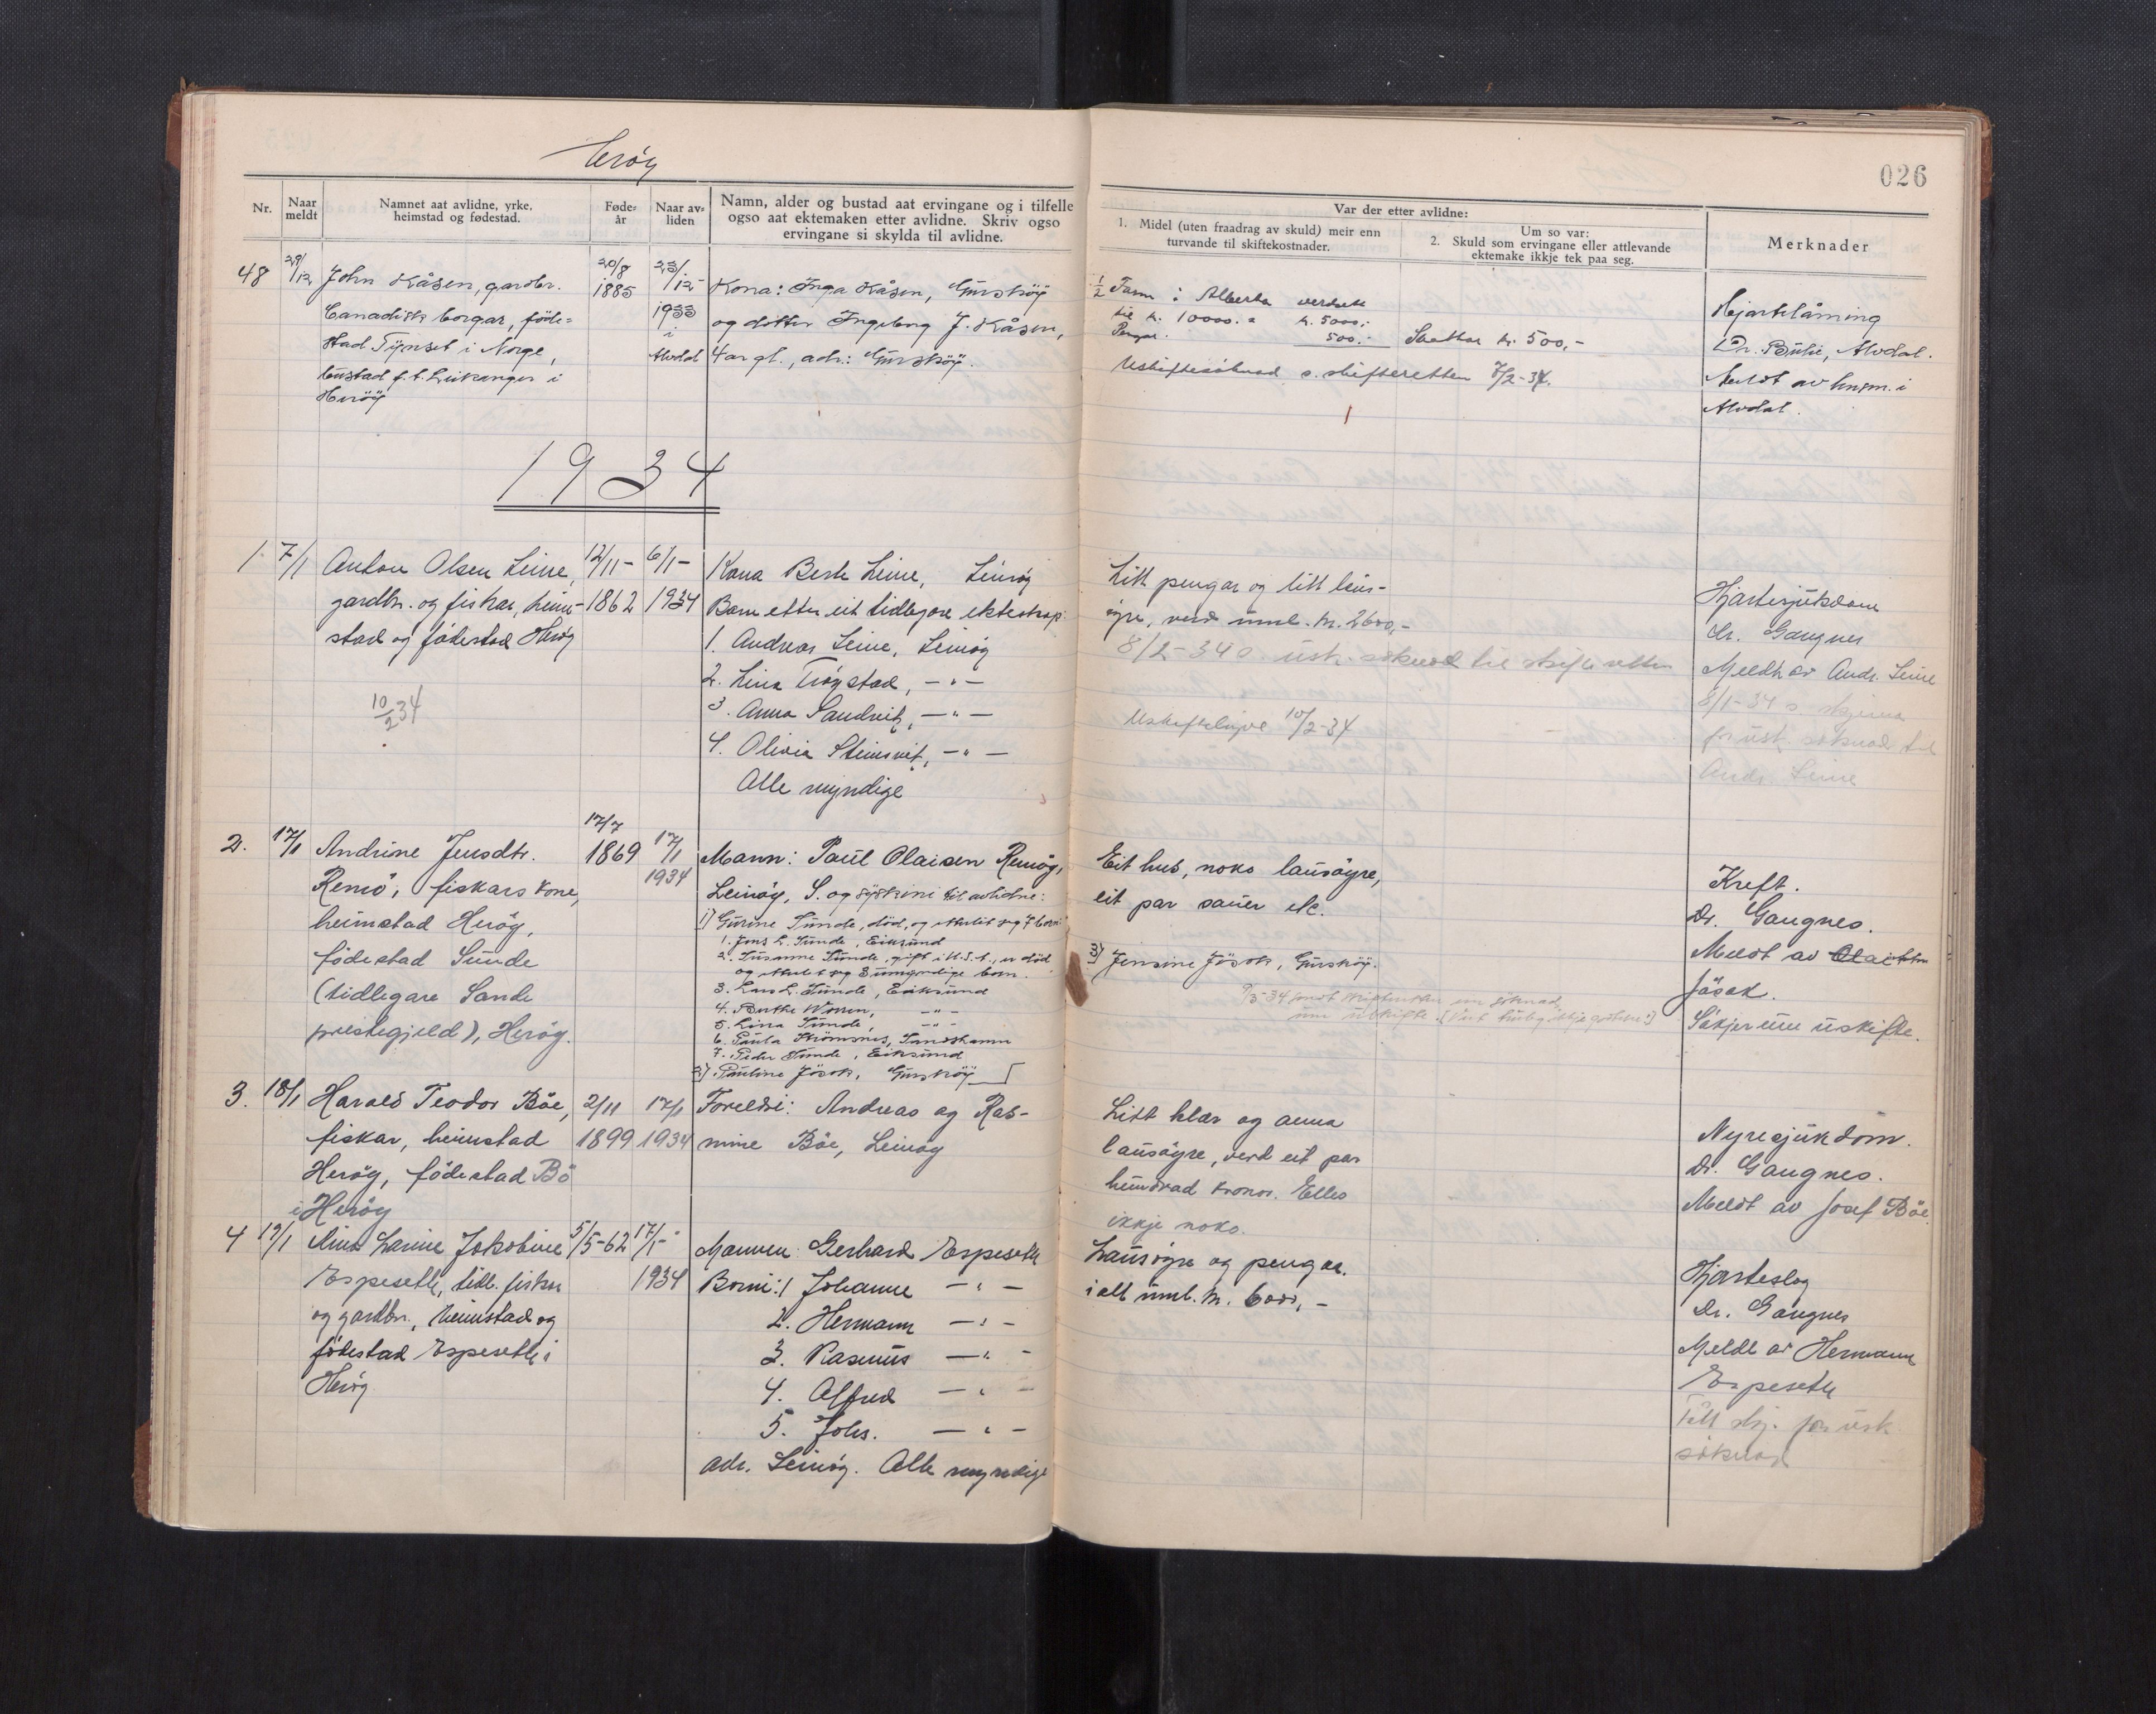 Heröy
026
Nr.
Naar meldt
Namnet aat avlidne, yrke, heimstad og fødestad.
Føde-år
Naar av-liden
Namn, alder og bustad aat ervingane og i tilfelle ogso aat ektemaken etter avlidne. Skriv ogso ervingane si skylda til avlidne.
Var der etter avlidne:
1. Midel (uten fraadrag av skuld) meir enn turvande til skiftekostnader.
Um so var:
2. Skuld som ervingane eller attlevande ektemake ikkje tek paa seg.
Merknader
48
29/12
John Kåsen, gardbr.
Canadisk borgar, föde-
stad Tynset i Norge,
bustad f.t. Leikanger i
Heröy
20/8
1885
23/12
1933
i
Alvdal
Kona: Inga Kåsen, Gurskøy
og dotter Ingeborg J. Kåsen,
4 år gl., adr: Gurskøy.
1/2 Farm i Alberta verdsett
til kr. 10000.= kr. 5000,-
Pengar 500,-
Skattar kr. 500,-
Uskiftesöknad s. skifteretten 7/2-34.
Hjartelåming
Dr. Buhi, Alvdal.
Meldt av lensm. i
Alvdal.
1934
1.
7/1
Anton Olsen Leine,
gardbr. og fiskar, heim-
stad og födestad Heröy
10/2 34
12/11-
1862
6/1-
1934
Kona Berte Leine, Leinöy
Barn etter eit tidlegare ekteskap:
1. Andreas Leine, Leinöy
2. Lina Tröystad, -"-
3. Anna Sandvik, -"-
4. Olivia Steinsvik, -"-
Alle myndige
Litt pengar og litt laus-
öyre, verd uml. kr. 2600,-
8/2-34 s. usk. söknad til skifteretten
Uskifteløyve 10/2-34
Hjartesjukdom
Dr. Gaugnes
Meldt av Andr. Leine
8/1-34 s. skjema
for usk. söknad til
Andr. Leine
2.
17/1
Andrine Jensdtr.
Remö, fiskars kone,
heimstad Heröy,
födestad Sunde
(tidlegare Sande
prestegjeld), Heröy.
17/7
1869
17/1
1934
Mann: Paul Olaisen Remöy,
Leinöy, S. og syskini til avlidne:
1) Gurine Sunde, död, og etterlet seg 7 born:
1. Jens L. Sunde, Eiksund
2. Susanne Sunde, gift i U.S.A., er död
og etterlet seg 3 umyndige born.
3. Lars L. Sunde, Eiksund
4. Berthe Worren, -"-
5. Lina Sunde, -"-
6. Paula Strömsnes, Sandshamn
7. Peder Sunde, Eiksund
2) Pauline Jösok, Gurskøy
Eit hus, noko lausöyre,
eit par sauer etc.
3) Jensine Jösok, Gurskøy.
Kreft.
Dr. Gaugnes.
Meldt av
Jösok.
Sökjer um uskifte.
3.
18/1
Harald Teodor Böe,
fiskar, heimstad
Heröy, födestad Bö
i Heröy
2/11
1899
17/1
1934
Foreldri: Andreas og Ras-
mine Böe, Leinöy
Litt klær og anna
lausöyre, verd eit par
hundrad kronor. Elles
ikkje noko.
Nyresjukdom.
Dr. Gaugnes.
Meldt av Josef Böe.
4
19/1
Larine Jakobine
Espeseth, tidl. fiskar
og gardbr., heimstad og
födestad Espeseth i
Heröy
5/5-62
17/1-
1934
Mannen: Gerhard Espeseth
Borni: 1 Johanne -"-
2. Hermann -"-
3. Rasmus -"-
4. Alfred -"-
5. Johs. -"-
adr. Leinöy. Alle myndige
Lausöyre og pengar.
i alt uml. kr. 6000,-
Hjarteslag
Dr. Gaugnes
Meldt av Hermann
Espeseth
Fått skj. for usk.
söknad